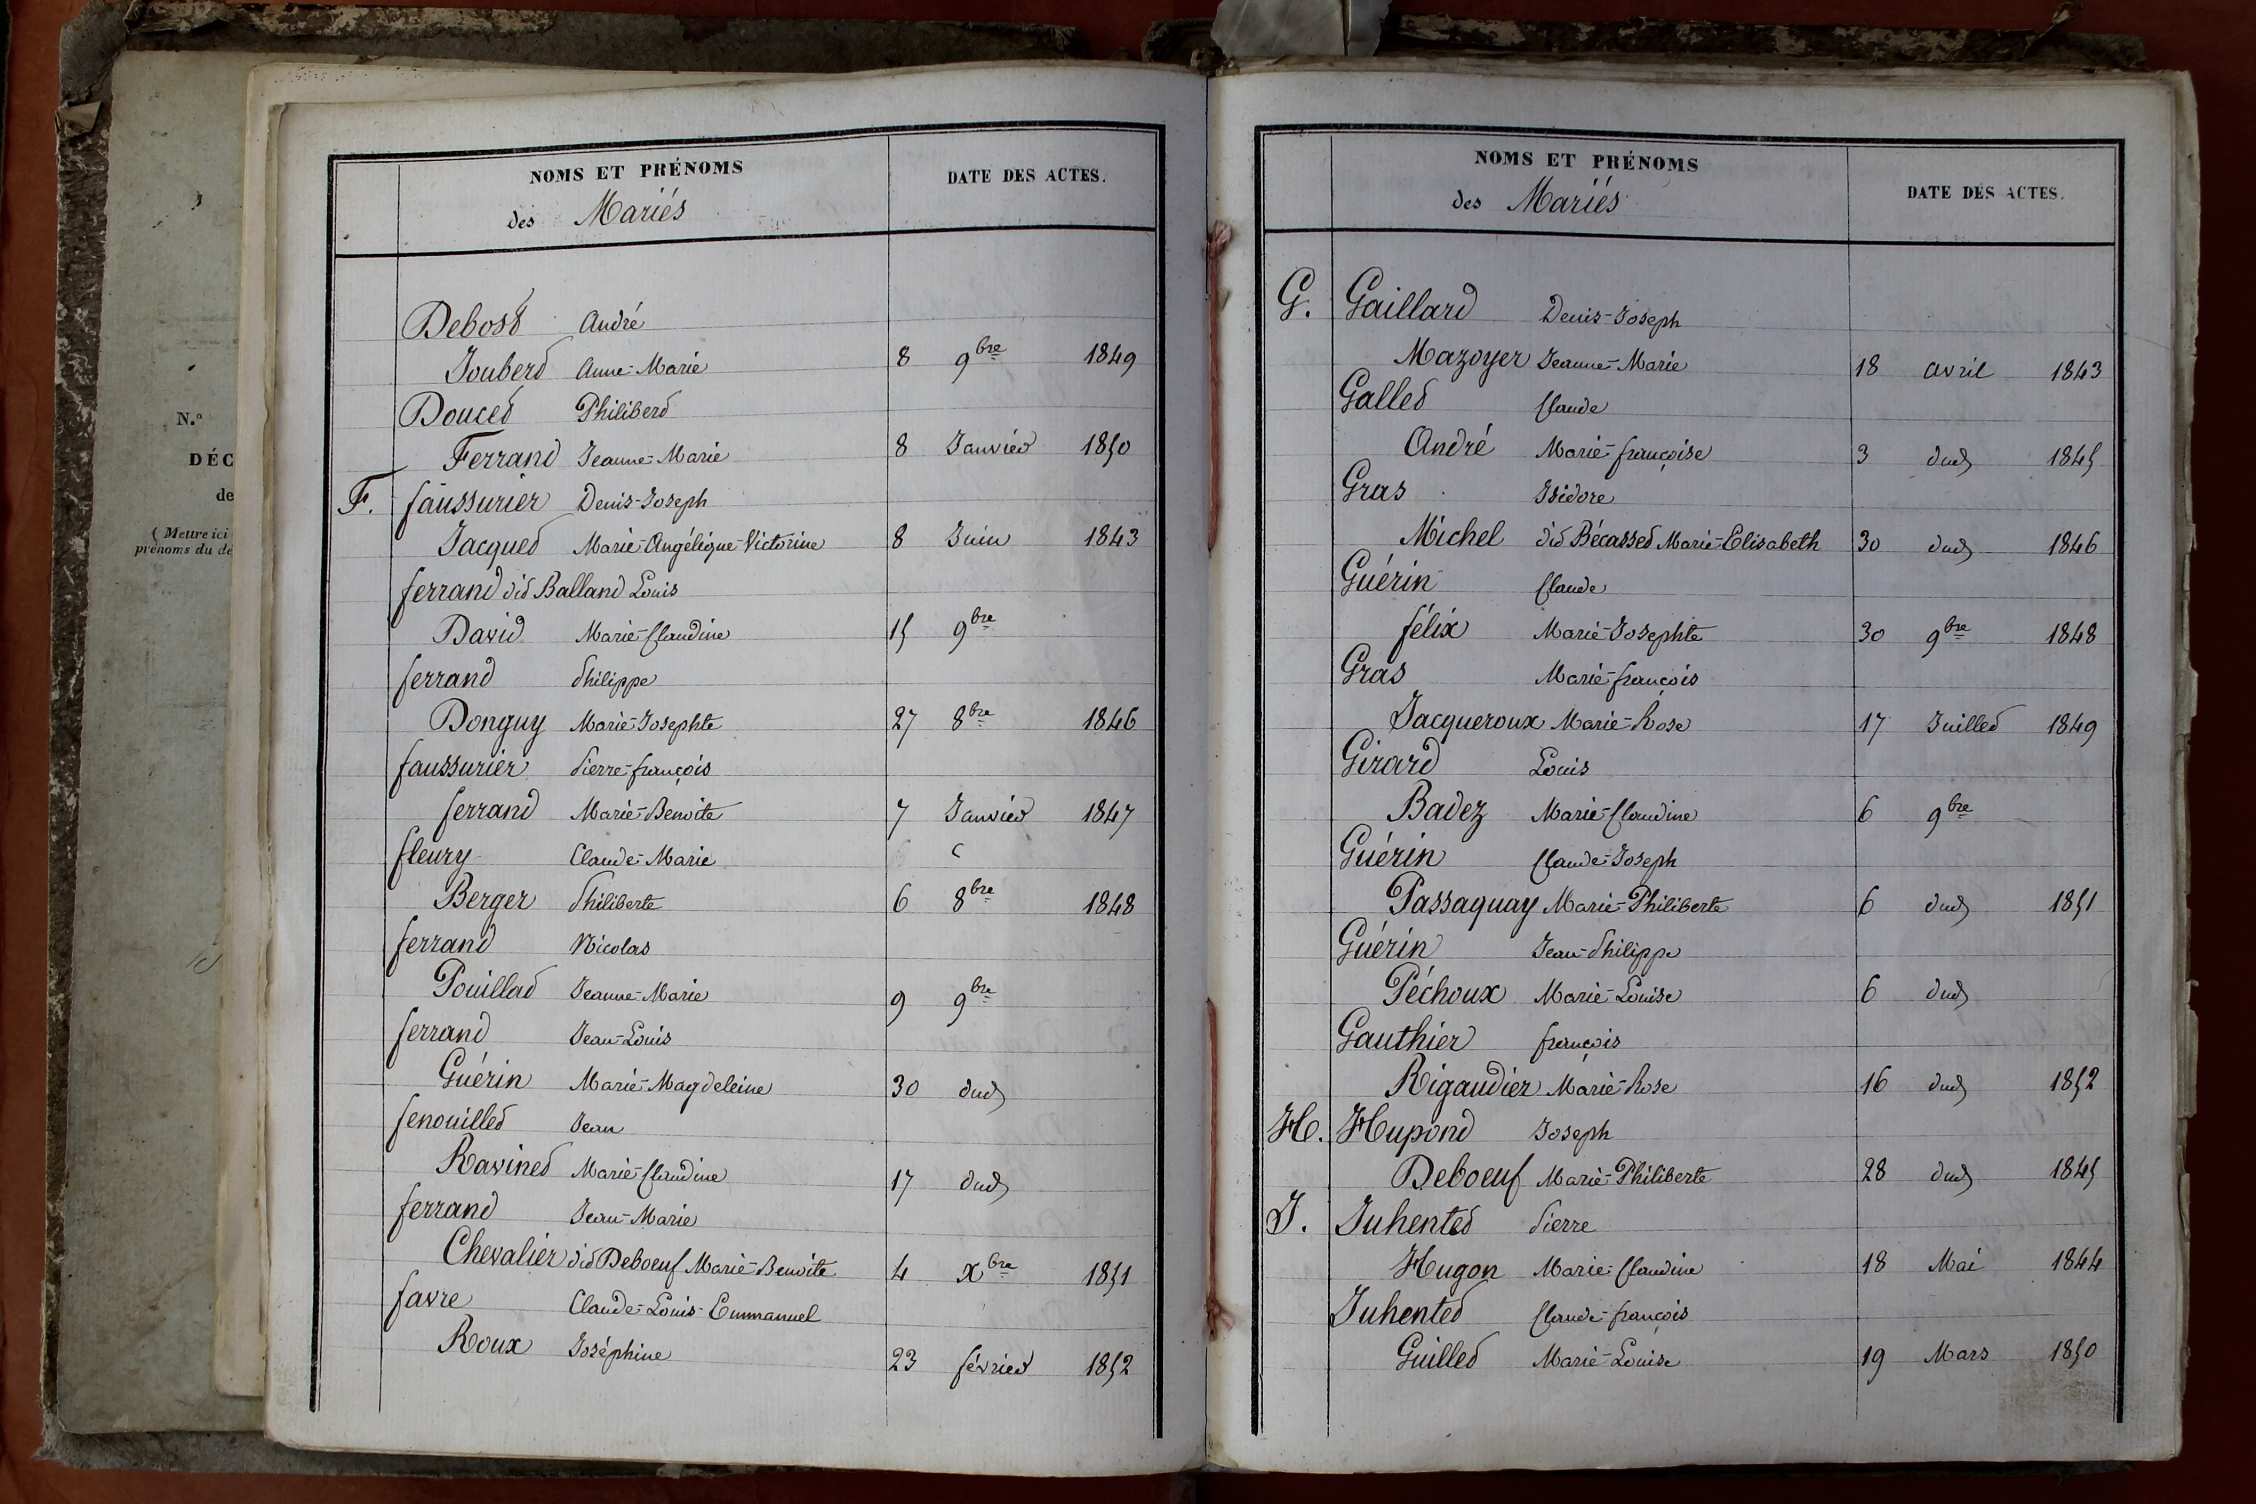 N.o
DÉC
de
( Mettre ici
prénoms du dé
NOMS ET PRÉNOMS
DATE DES ACTES.
des Mariés
Debost André
Joubert Anne-Marie 8 9bre 1849
Doucet Philibert
Ferrand Jeanne-Marie 8 Janvier 1850
F. faussurier Denis-Joseph
Jacquet Marie-Angélique-Victorine 8 Juin 1843
ferrand dit Balland Louis
David Marie-Claudine 15 9bre
ferrand Philippe
Donguy Marie-Josephte 27 8bre 1846
faussurier Pierre-françois
ferrand Marie-Benoite 7 Janvier 1847
fleury Claude-Marie
Berger Philiberte 6 8bre 1848
ferrand Nicolas
Pouillat Jeanne-Marie 9 9bre
ferrand Jean-Louis
Guérin Marie-Magdeleine 30 dud
fenouillet Jean
Ravinet Marie-Claudine 17 dud
ferrand Jean-Marie
Chevalier dit Deboeuf Marie-Benoite 4 Xbre 1851
favre Claude-Louis-Emmanuel
Roux Joséphine 23 février 1852
NOMS ET PRÉNOMS
DATE DES ACTES.
des Mariés
G. Gaillard Denis-Joseph
Mazoyer Jeanne-Marie 18 avril 1843
Gallet Claude
André Marie-françoise 3 dud 1845
Gras Isidore
Michel dit Bécasset Marie-Elisabeth 30 dud 1846
Guérin Claude
félix Marie-Josephte 30 9bre 1848
Gras Marie-françois
Jacqueroux Marie-Rose 17 Juillet 1849
Girard Louis
Badez Marie-Claudine 6 9bre
Guérin Claude-Joseph
Passaquay Marie-Philiberte 6 dud 1851
Guérin Jean-Philippe
Péchoux Marie-Louise 6 dud
Gauthier françois
Rigaudier Marie-Rose 16 dud 1852
H. Hupond Joseph
Deboeuf Marie-Philiberte 28 dud 1845
J. Juhentet Pierre
Hugon Marie-Claudine 18 Mai 1844
Juhentet Claude-françois
Guillet Marie-Louise 19 Mars 1850